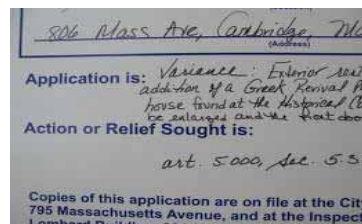 806 Mass Ave, Cambridge, Ma
(Address)
Application is: Variance: Exterior rest
addition of a Greek Revival P
house found at the Historical C
be enlarged and the front doo
Action or Relief Sought is:
art. 5.000, Sec. 5.3
Copies of this application are on file at the Cit
795 Massachusetts Avenue, and at the Inspec
Lombard Building